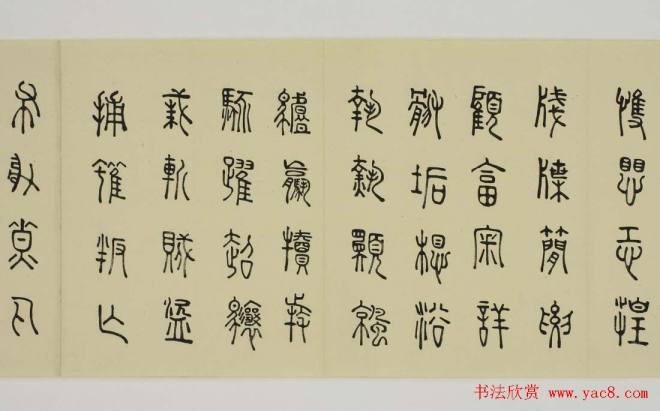 悚懼恐惶
牋牒簡要
顧答審詳
骸垢想浴
執熱願涼
驢騾犢特
駭躍超驤
誅斬賊盜
捕獲叛亡
布射遼丸
书法欣赏 www.yac8.com